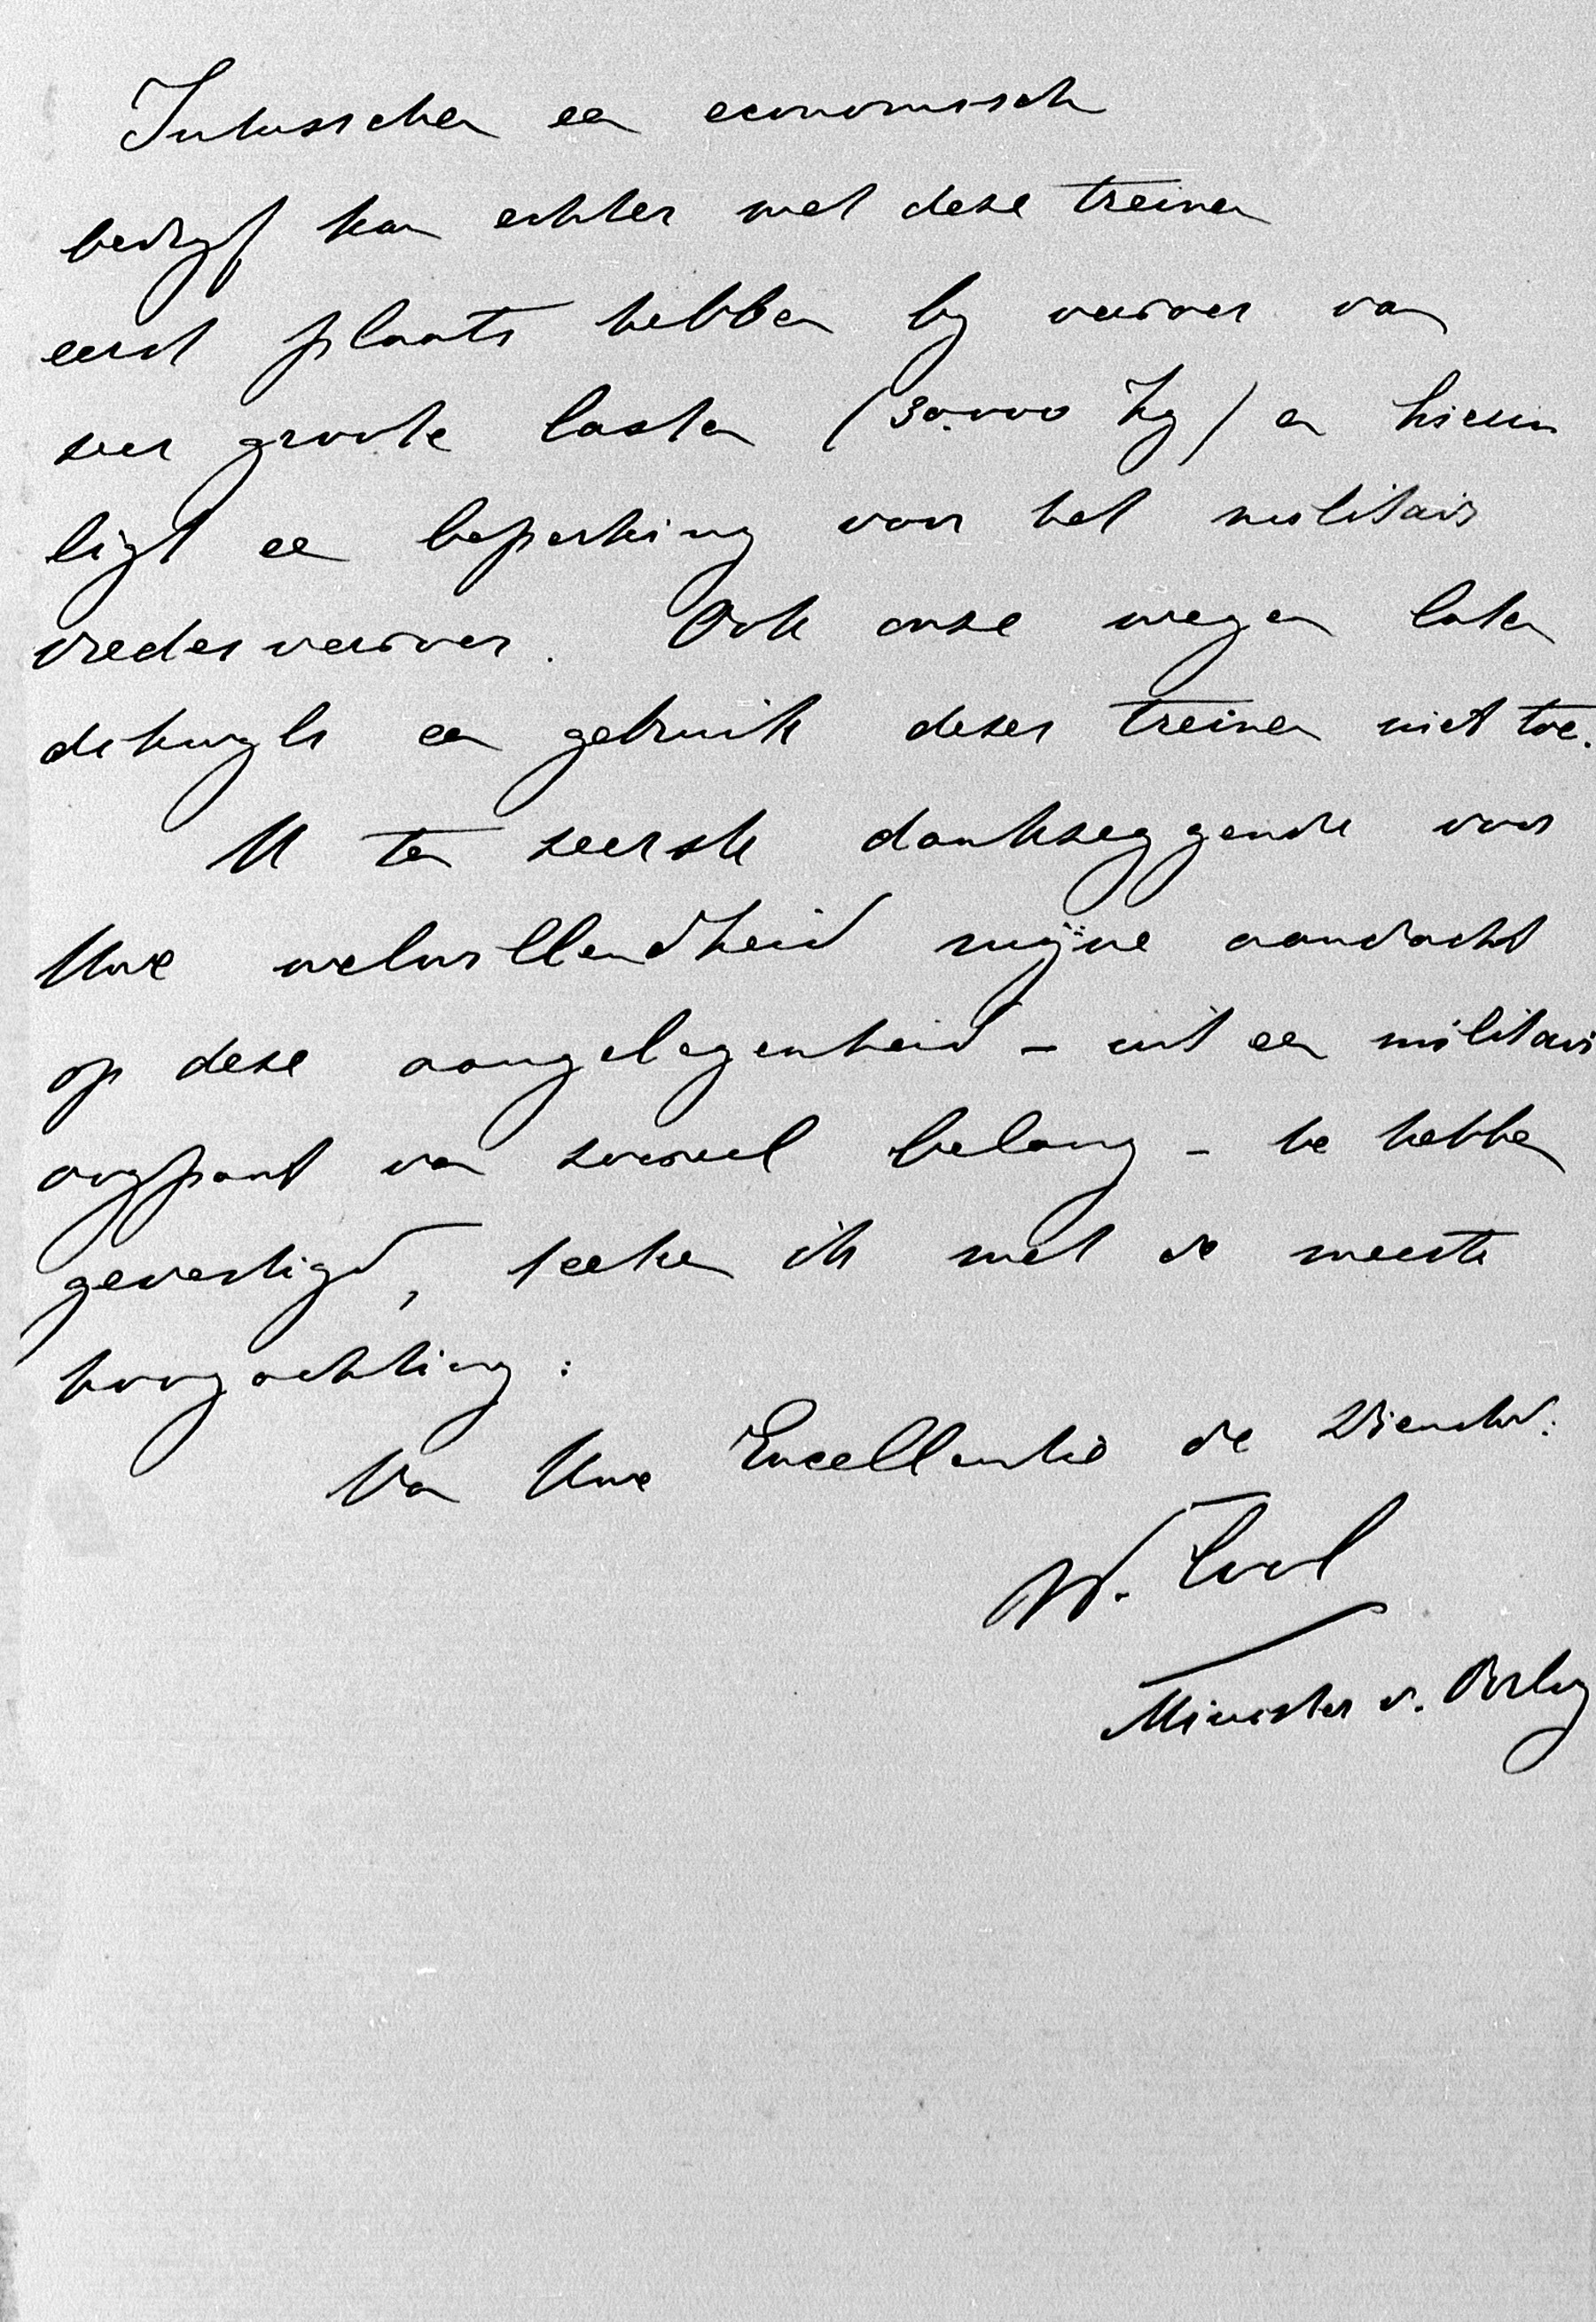 Intusschen een economisch
bedrijf kan echter met deze treinen
eerst plaats hebben bij vervoer van
zeer groote lasten (30.000 kg) en hierin
ligt een beperking voor het militair
vredesvervoer. Ook onze wegen laten
dikwijls een gebruik dezer treinen niet toe.
U ten zeerste dankzeggende voor
Uwe welwillendheid mijne aandacht
op deze aangelegenheid – uit een militair
oogpunt van zooveel belang – te hebben
gevestigd, teeken ik met de meeste
hoogachting:
Van Uwe Excellentie de Dienstw:
W. Cool
Minister v. Oorlog